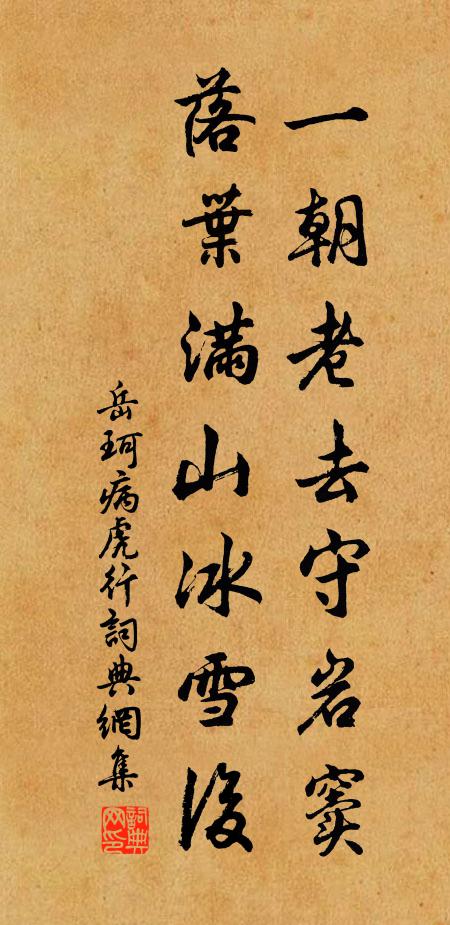 一朝老去守岩窦
落葉滿山冰雪後
岳珂病虎行詞典網集
詞典网印